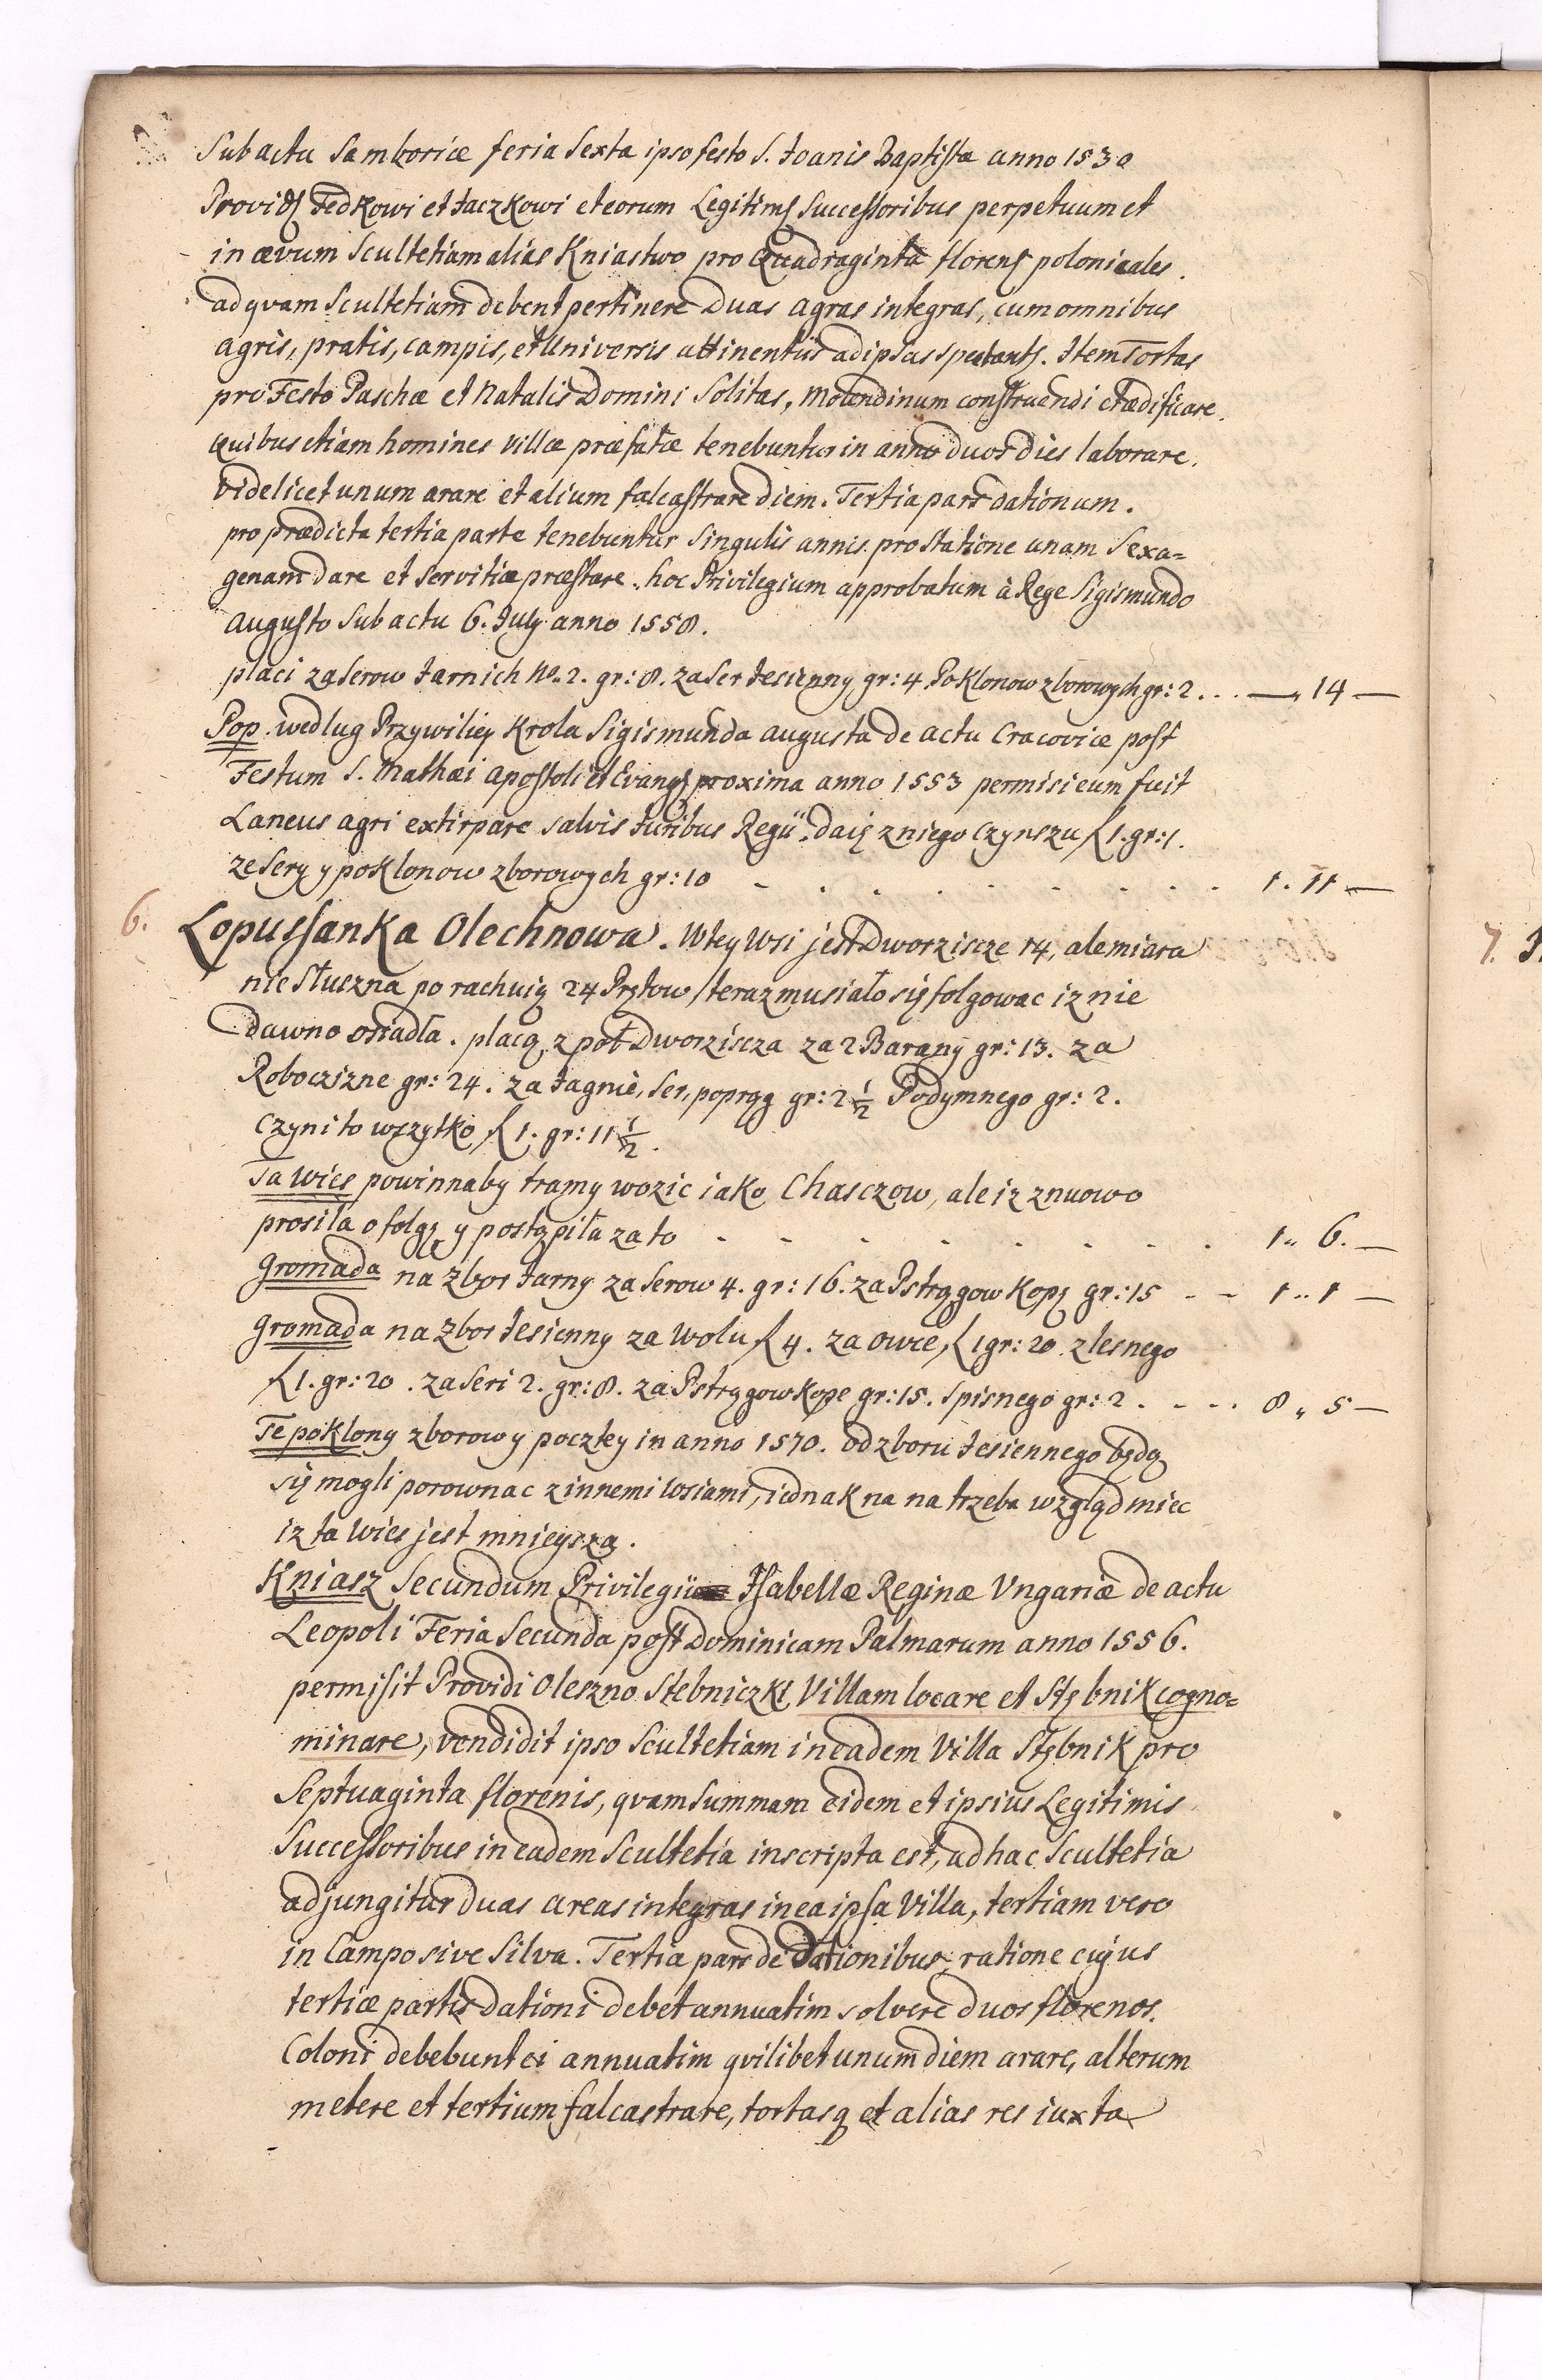 Sub actu Samboriæ feria Sexta ipso festo S. Joanis Baptista anno 1530
Provids Fedkowi et Jaczkowi et eorum Legitims Successoribus perpetuum et
in ævum Scultetiam alias Kniastwo pro Quadraginta florens polonicales.
ad qvam Scultetiam debent pertinere Duas agras integras, cum omnibus
agris, pratis, campis, et Universis attinentiis ad ipsas spectants. Item Tortas
pro Festo Paschæ et Natalis Domini Solitas, Molendinum construendi et ædificare.
Quibus etiam homines Villæ præfatæ tenebuntur in anno duos dies laborare.
Videlicet unum arare et alium falcastrare diem. Tertia pars dationum.
pro prædicta tertia parte tenebuntur Singulis annis pro Statione unam Sexa=
genam dare et Servitia præstare. hoc Privilegium approbatum à Rege Sigismundo
Augusto Sub actu 6. July anno 1558.
płaci za Serow Jarnich No. 2. gr: 8. za Ser Jesienny gr: 4. Poklonow zborowych gr: 2 . . . —„ 14 —
Pop. według Przywiliey Krola Sigismunda Augusta de actu Cracoviæ post
Festum S. Mathæi Apostoli et Evang proxima anno 1553 permisi eum fuit
Laneus agri extirpare salvis Juribus Regÿ. daię z niego Czynszu ƒ 1. gr: 1.
ze Sery y poklonow zborowych gr: 10 - . . . . . . . . 1. 11 —
6. Lopussanka Olechnowa. W tey Wsi jest Dworziscze 14, ale miara
nie Słuczna po rachuią 24 Prętow / teraz musiało się folgowac iz nie
dawno osiadła. placą z poł Dworziscza za 2 Barany gr: 13. za
Roboczizne gr: 24. za Jagnie, Ser, poprąg gr: 2 1/2 Podymnego gr: 2.
Czyni to wszytko ƒ 1. gr: 11 1/2.
Ta Wies powinnaby tramy wozic iako Chasczow, ale iz znuowo
prosiła o folgę y postąpiła za to - - - - - - - . 1„ 6. —
Gromada na zbor Jarny za Serow 4. gr: 16. za Pstrągow Kopę gr: 15 - - 1„ 1 —
Gromada na zbor Jesienny za Wolu ƒ 4. za owce ƒ 1 gr: 20. z lesnego
ƒ 1. gr: 20. za Seri 2. gr: 8. za Pstrągow Kope gr: 15. Spisnego gr: 2 . - - . . 8 „ 5 —
Te poklony zborowy poczty in anno 1570. od zboru Jesiennego będą
się mogli porownac z innemi wsiami, iednak na na trzeba wzgląd miec
iz ta Wies jest mnieysza.
Kniasz Secundum Privilegÿ Isabellæ Reginæ Vngariæ de actu
Leopoli Feria Secunda post Dominicam Palmarum anno 1556.
permisit Providi Oleszno Stebniczki Villam locare et Stębnik cogno=
minare, vendidit ipso Scultetiam in eadem Villa Stębnik pro
Septuaginta florenis, qvam Summam eidem et ipsius Legitimis
Successoribus in eadem Scultetia inscripta est, ad hac Scultetia
adjungitur duas areas integras in ea ipsa Villa, tertiam vero
in Campo sive Silva. Tertia pars de Dationibus, ratione cujus
tertiæ partis dationi debet annuatim solvere duos florenos.
Coloni debebunt ei annuatim qvilibet unum diem arare, alterum
metere et tertium falcastrare, tortasq et alias res iuxta
7.